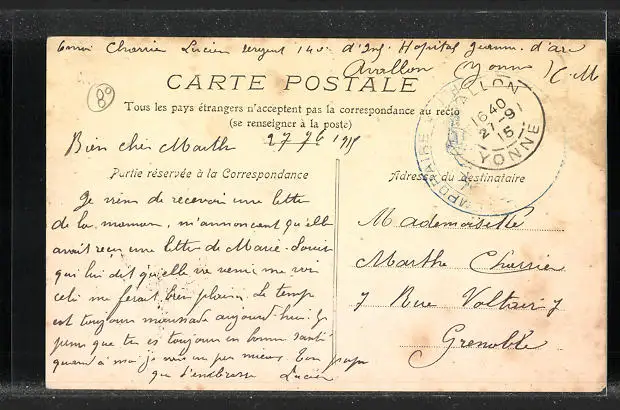 Envoi Charrier Lucien sergent 140e d'Inf. Hopital Jeanne d'arc
Avallon Yonne F.M
CARTE POSTALE
Tous les pays étrangers n'acceptent pas la correspondance au recto
(se renseigner à la poste)
AVALLON
16 40
21 - 9
15
YONNE
TEMPORAIRE
8º
Bien chère Marthe 27 1915
Partie réservée à la Correspondance
Je viens de recevoir une lettre
de la maman, m'annonçant qu'elle
avait reçu une lettre de Marie-Louise
qui lui dit qu'elle me voir
cela me ferait bien plaisir. Le temps
est toujours maussade aujourd'hui. Je
pense que tu es toujours en bonne santé
quand à moi je vais un peu mieux. Ton
que t'embrasse Lucien
Adresse du destinataire
Mademoiselle
Marthe Charrier
7 Rue Voltaire 7
Grenoble